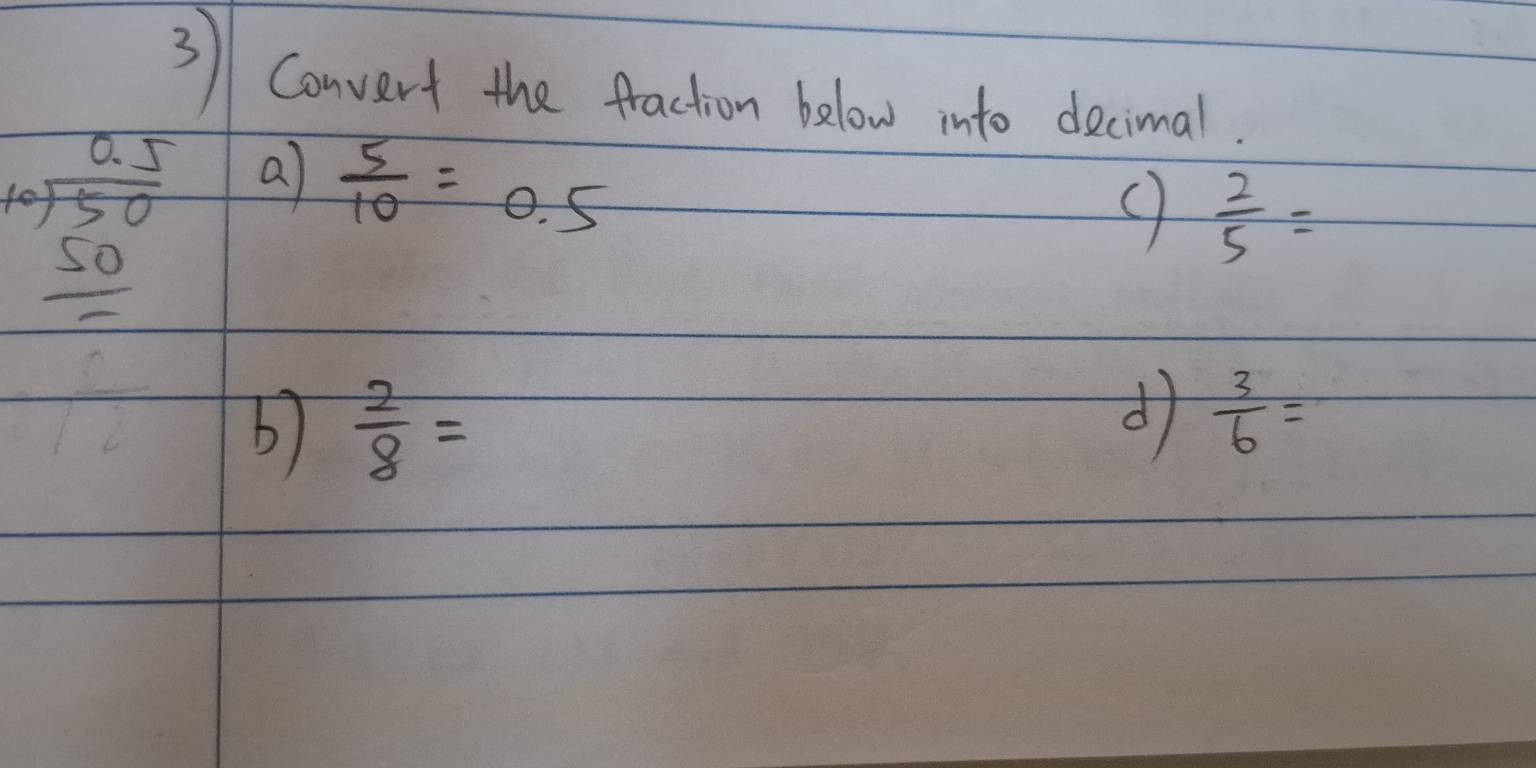 3) Convert the fraction below into decimal.
0.5
10)50
50
a) 5/10 = 0.5
c) 2/5 =
b) 2/8 =
d) 3/6 =